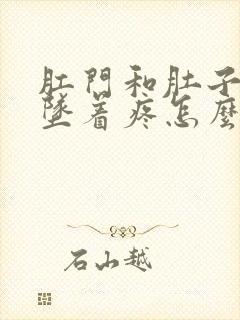 肛門和肚子
墜着疼怎麼
石山越